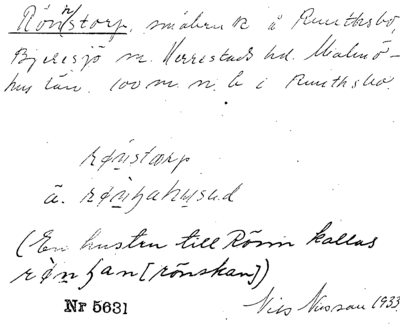 Rönnstorp, småbruk å Runthsbo,
Bjeresjö sn. Herrestads hd. Malmö-
hus län. 100 m. n. b i Runthsbo.
rønstorp
ä.
(En hustru till Rönn kallas
[rönskan])
Nr 5631
Nils Nilsson 1933